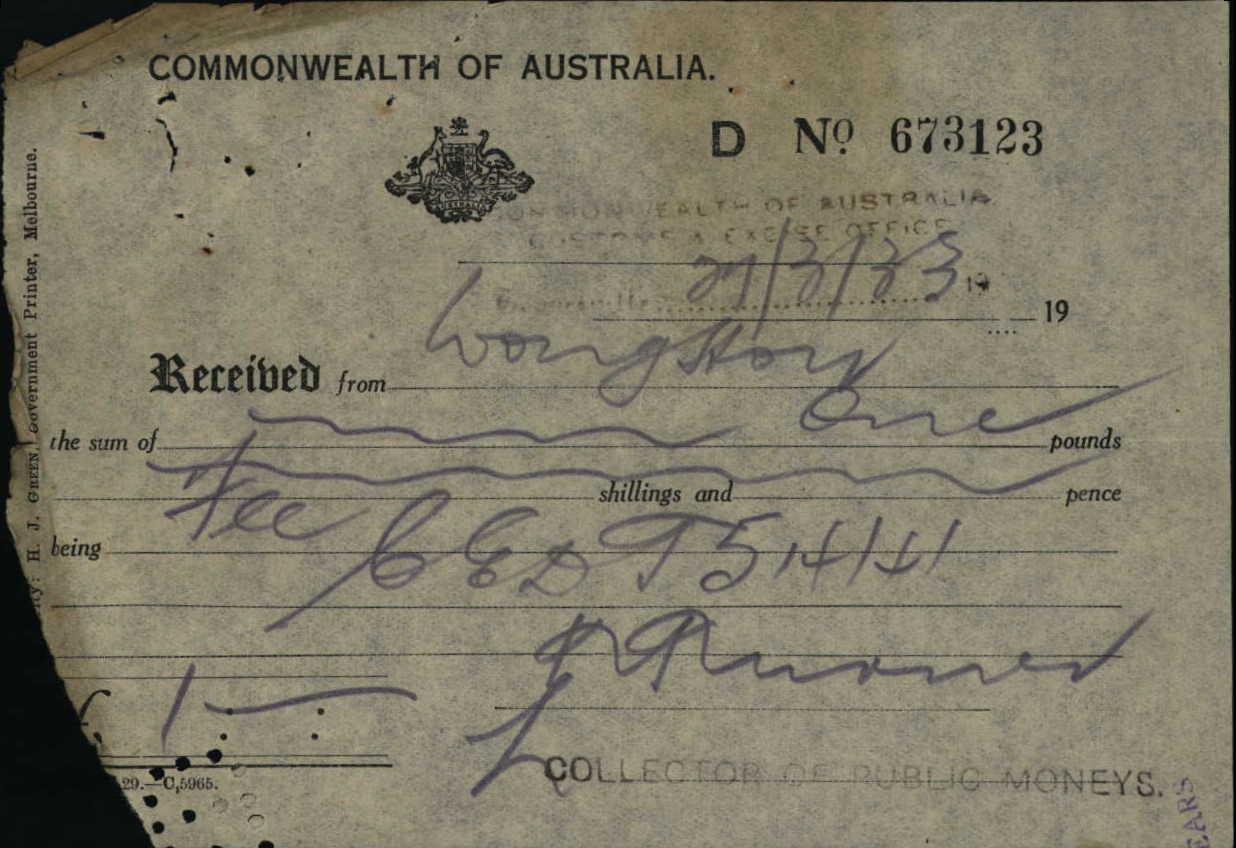 COMMONWEALTH OF AUSTRALIA.
D Nº 673123
AUSTRALIA
COMMONWEALTH OF AUSTRALIA
CUSTOMS & EXCISE OFFICE
19
19
Received from Wong Hoy
the sum of One pounds
shillings and pence
being Fee C E D T 5
£ 1 . — .
29.—C,5965.
COLLECTOR OF PUBLIC MONEYS.
H. J. GREEN, Government Printer, Melbourne.
EARS